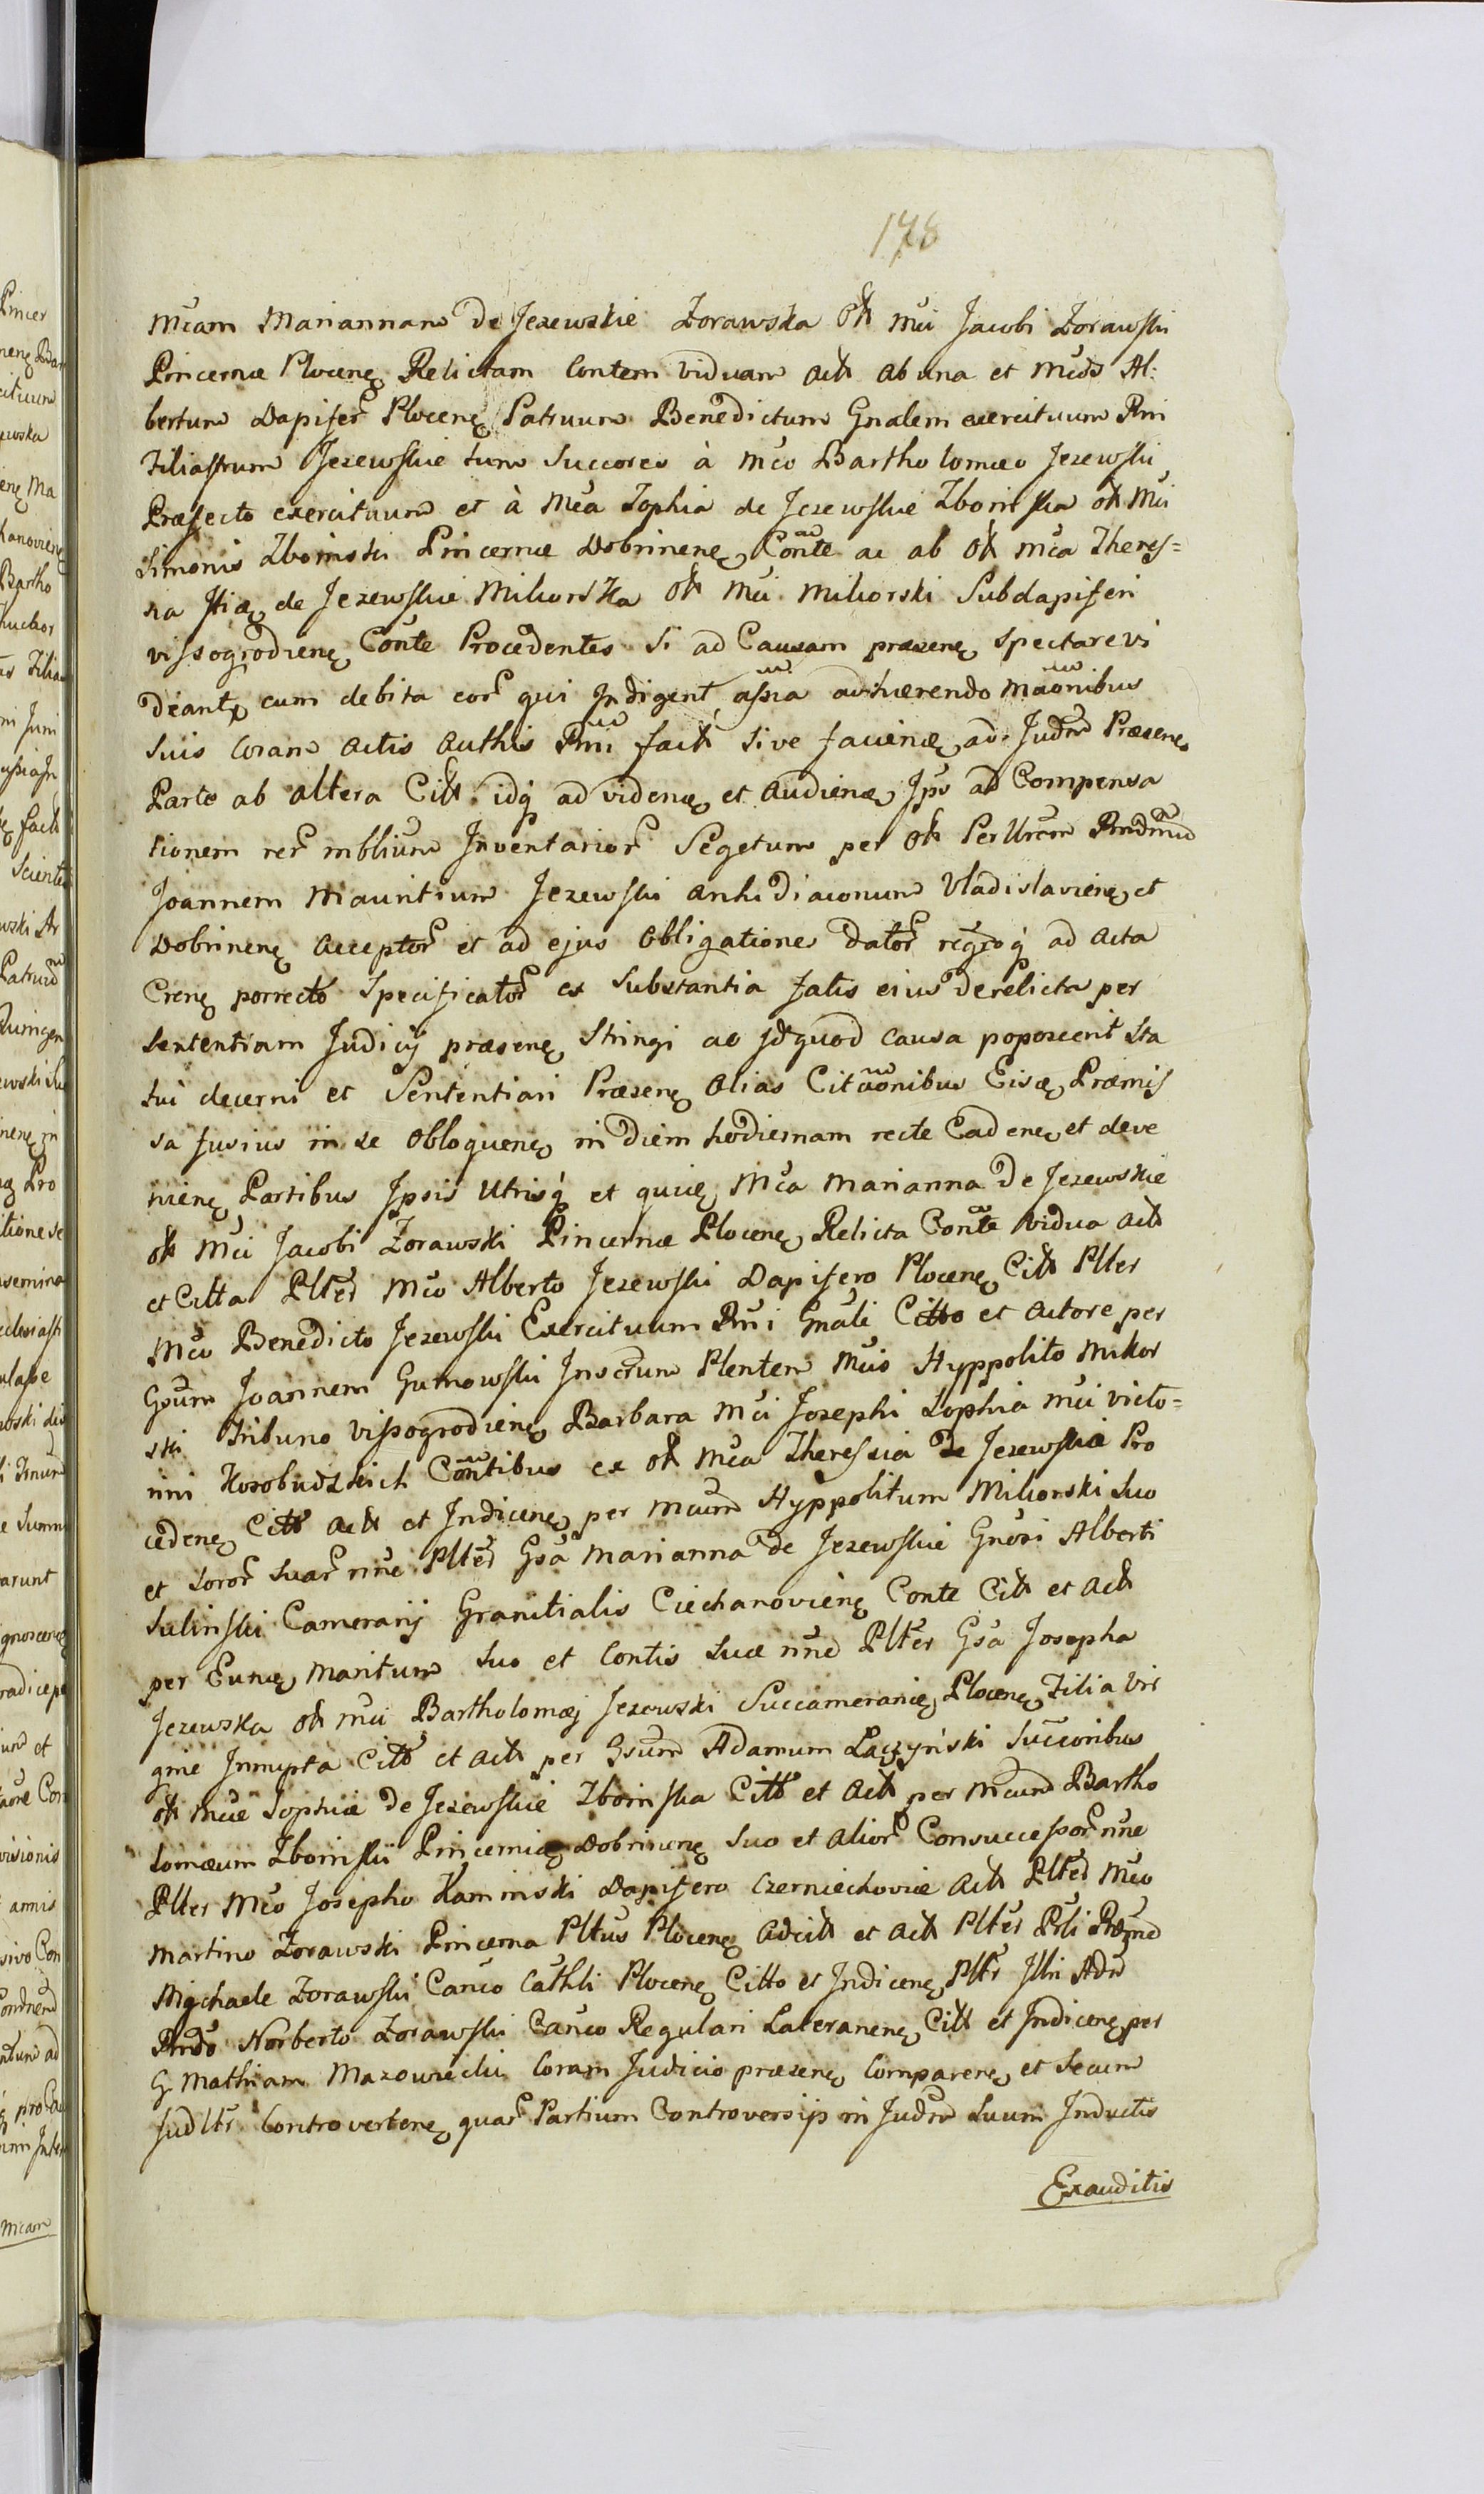 178
Mcam Mariannam de Jezewskie Zorawska Olt Mci Jacobi Zorawski
Pincernæ Plocenę Relictam Contem Viduam Actt ab una et Mcos Al:
bertum Dapiferũ Plocenę Patruum Benedictum Gnalem exercituum Rni
Filiastrum Jezewskie tum Succores à Mco Bartholomæo Jezewski
Præfecto exercituum et à Mca Zophia de Jezewskie Zboinska olt Mci
Simonis Zboinski Pincernæ Dobrinenę Conte ac ab Olt Mca Theres=
sia Itię de Jezewskie Mikorska Olt Mci Mikorski Subdapiferi
Vissogrodienę Conte Procedentes si ad Causam præsenę spectare vi
deantę cum debita eorũ qui Indigent assia adhærendo maonibus
suis Coram Actis Authis Rni factt sive faciendę ad Judm Præsenę
Parte ab altera Citt idq̃ ad videndę et audiendę Ips ad Compensa
tionem rerũ mbliũm Inventariorũ Segetum per Olt Perllrem Rndmũm
Joannem Mauritium Jezewski Archidiaconum Vladislavienę et
Dobrinenę Acceptorũ et ad ejus Obligationes Datorũ regroq̃ ad Acta
Crenę porrecto Specificatorũ ex Substantia fatis eius derelicta per
Sententiam Judicij præsenę Stringi ac Idquod causa poposcerit Sta
tui decerni et Sententiari Præsenę Alias Citaonibus Eisę Præmis
sa fusius in se Obloquenę in diem hodiernam recte Cadenę et deve
nienę Partibus Ipsis Utrisq̃ et quidę Mca Marianna de Jezewskie
olt Mci Jacobi Zorawski Pincernæ Plocenę Relicta Conte Vidua Actt
et Citta Plter Mco Alberto Jezewski Dapifero Plocenę Citt Plter
Mco Benedicto Jezewski Exercituum Rni Gnali Citto et Actore per
Gsum Joannem Gumowski Inscrum Plentem Mcis Hyppolito Mikor
ski Tribuno Vissogrodienę Barbara Mci Josephi Zophia Mci Victo=
rini Kosobudzkich Contibus ex olt Mca Theressia de Jezewskie Pro
cedenę Citt Actt et Indicenę per Mcum Hyppolitum Mikorski Suo
et Sororũ Suarũ nne Plter Gsa Marianna de Jezewskie Gnosi Alberti
Sulinski Camerarij Granitialis Ciechanovienę Conte Citt et Actt
per Eundę Maritum Suo et Contis Suæ nne Plter Gsa Josepha
Jezewska olt Mci Bartholomæj Jezewski Succamerarię Plocenę Filia Vir
gine Innupta Citt et Actt per Gsum Adamum Laczyński Succoribus
olt Mcæ Sophiæ de Jezewskie Zboinska Citt et Actt per Mcum Bartho
lomæum Zboinski Pincernię Dobrinenę Suo et aliorũ Consuccessorũ nne
Plter Mco Josepho Kaminski Dapifero Czerniechoviæ Actt Plter Mco
Martino Zorawski Pincerna Pltus Plocenę Adcitt et Actt Plter Prli Rndmo
Michaele Zorawski Canco Cathli Plocenę Citto et Indicenę Pltr Illri Adm
Rndo Norberto Zorawski Canco Regulari Lateranenę Citt et Indicenę per
G Mathiam Mazowiecki Coram Judicio præsenę Comparenę et Secum
Judltr Controvertenę quarũ Partium Controversijs in Judm suum Inductis
Exauditis